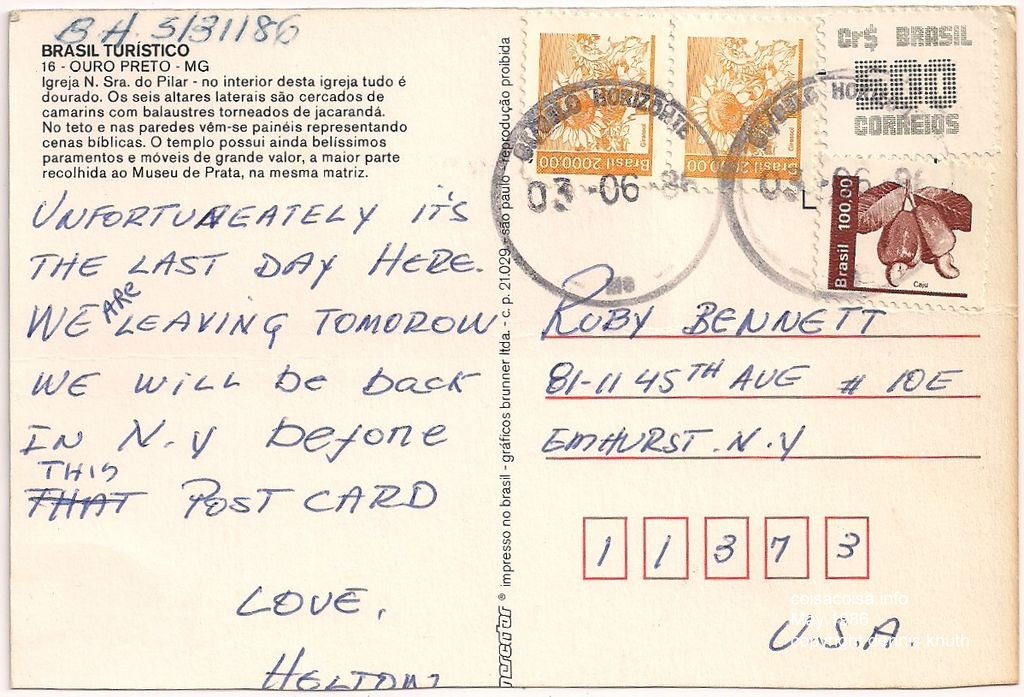 B.H. 5/31/86
BRASIL TURÍSTICO
16 - OURO PRETO - MG
Igreja N. Sra. do Pilar - no interior desta igreja tudo é
dourado. Os seis altares laterais são cercados de
camarins com balaustres torneados de jacarandá.
No teto e nas paredes vêm-se painéis representando
cenas bíblicas. O templo possui ainda belíssimos
paramentos e móveis de grande valor, a maior parte
recolhida ao Museu de Prata, na mesma matriz.
UNFORTUNEATELY IT'S
THE LAST DAY HERE.
WE ARE LEAVING TOMOROW
WE WILL be back
IN N.Y before
THIS
THAT POST CARD
LOVE,
HELTON
mercator ® impresso no brasil - gráficos brunner ltda. - c. p. 21.029 - são paulo - reprodução proibida
Brasil 2000,00
Girassol
Brasil 2000,00
Girassol
Cr$ BRASIL
500
CORREIOS
Brasil 100,00
Caju
BELO HORIZONTE
03-06 86
MG
HORIZONTE
03-06 86
RUBY BENNETT
81-11 45TH AVE # 10E
EMHURST. N.Y
1 1 3 7 3
U.S.A.
coisacoisa.info
May 1986
copyright dennis knuth